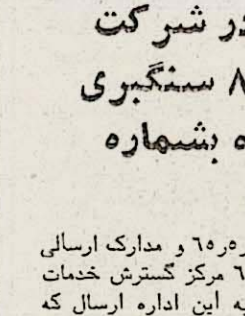 در شرکت
۸ سنگبری
ه بشماره
ر۵ر٦٥ و مدارک ارسالی
٦ مرکز گسترش خدمات
به این اداره ارسال که